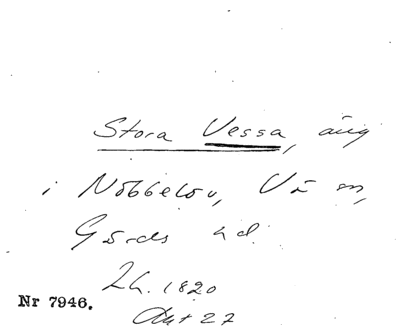 Stora Vessa, äng
i Nöbbelöv, Vä sn,
Gärds hd.
Lh. 1820
Akt 27
Nr 7946.